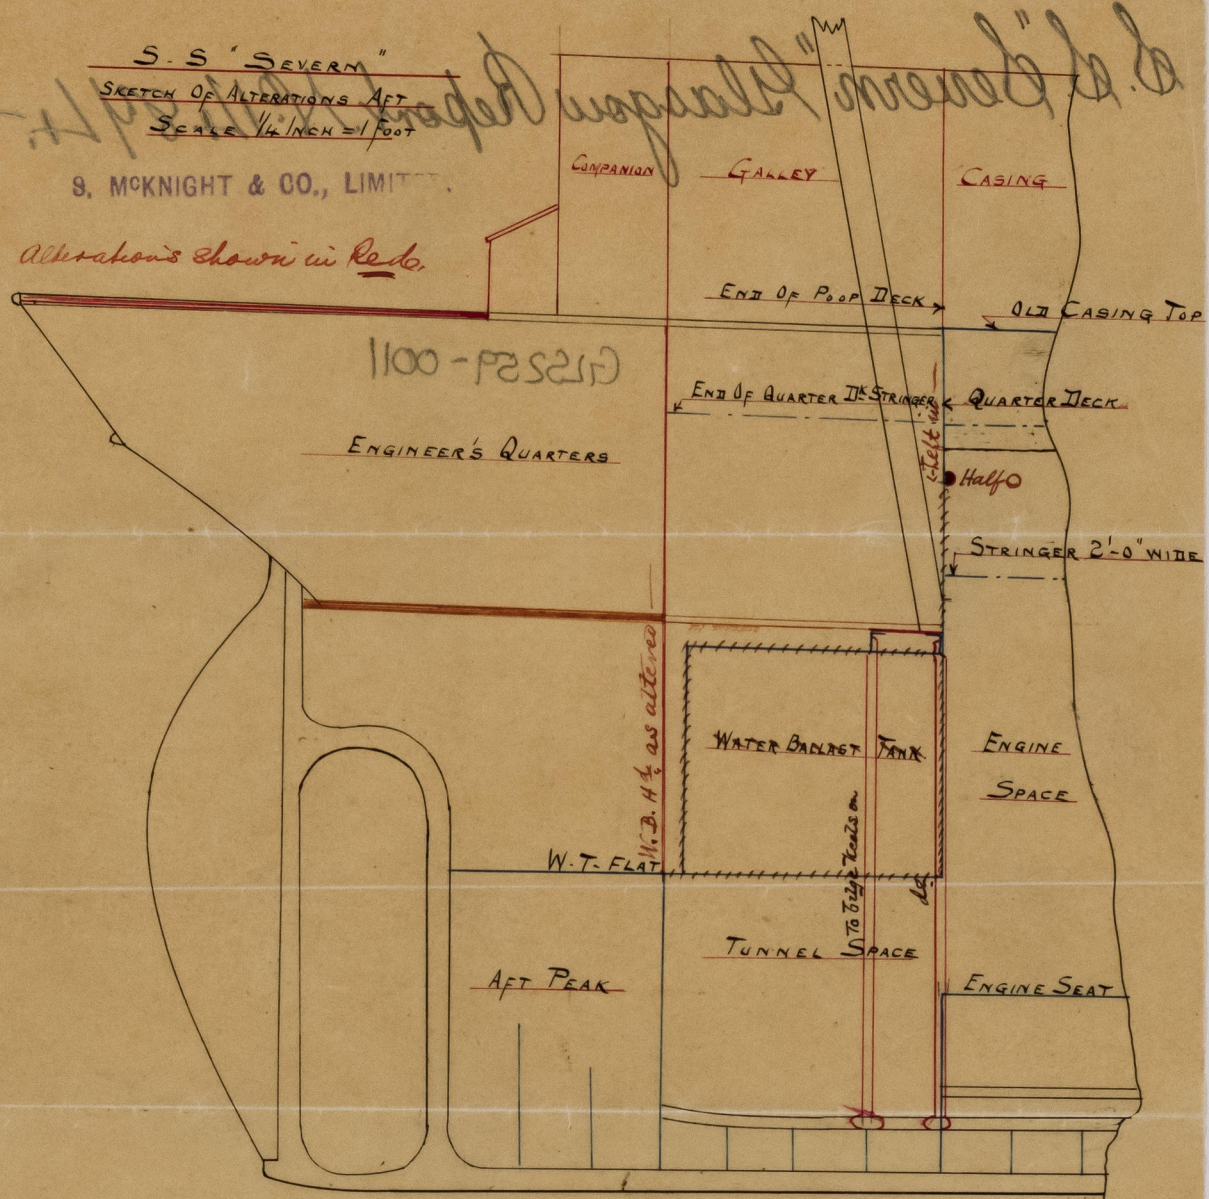 S.S "SEVERN"
SKETCH OF ALTERATIONS AFT
SCALE 1/4 INCH = 1 FOOT
S. McKNIGHT & CO., LIMITED.
Alterations shown in Red.
S.S "Severn" Glasgow Report No
COMPANION
GALLEY
CASING
END OF POOP DECK
OLD CASING TOP
GLS259-0011
END OF QUARTER DK STRINGER
QUARTER DECK
Left in
ENGINEER'S QUARTERS
Half O
STRINGER 2'-0" WIDE
W.B. Hd as altered
WATER BALLAST TANK
ENGINE
SPACE
To bilge keels on
do.
W.T. FLAT
TUNNEL SPACE
AFT PEAK
ENGINE SEAT